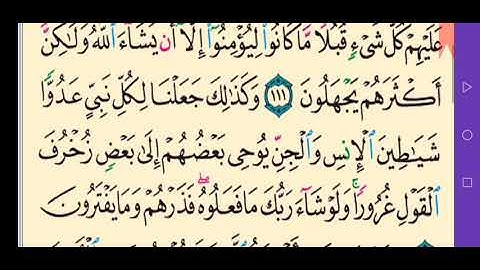 عَلَيۡهِمۡ كُلَّ شَيۡءٖ قُبُلٗا مَّا كَانُواْ لِيُؤۡمِنُوٓاْ إِلَّآ أَن يَشَآءَ ٱللَّهُ وَلَٰكِنَّ
أَكۡثَرَهُمۡ يَجۡهَلُونَ ١١١ وَكَذَٰلِكَ جَعَلۡنَا لِكُلِّ نَبِيٍّ عَدُوّٗا
شَيَٰطِينَ ٱلۡإِنسِ وَٱلۡجِنِّ يُوحِي بَعۡضُهُمۡ إِلَىٰ بَعۡضٖ زُخۡرُفَ
ٱلۡقَوۡلِ غُرُورٗاۚ وَلَوۡ شَآءَ رَبُّكَ مَا فَعَلُوهُۖ فَذَرۡهُمۡ وَمَا يَفۡتَرُونَ